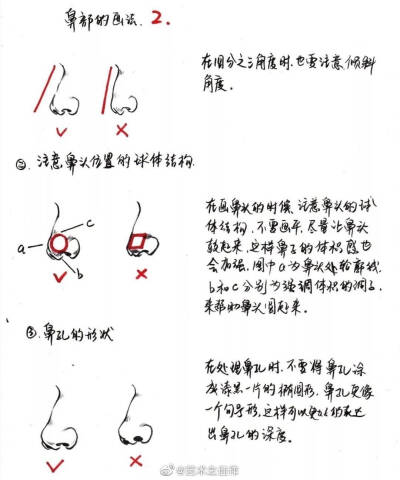 鼻部的画法. 2.
在四分之三角度时.也要注意倾斜
角度.
②.注意鼻头位置的球体结构.
在画鼻头的时候.注意鼻头的球
体结构.不要画平.尽量让鼻头
鼓起来.这样鼻子的体积感也
会加强.图中a为鼻头处轮廓线.
b和c分别为强调体积的调子.
来帮助鼻头圆起来.
a
c
b
③.鼻孔的形状
在处理鼻孔时.不要将鼻孔涂
成漆黑一片的椭圆形.鼻孔更像
一个勾子形.这样可以更好的表达
出鼻孔的深度.
@艺术之由师